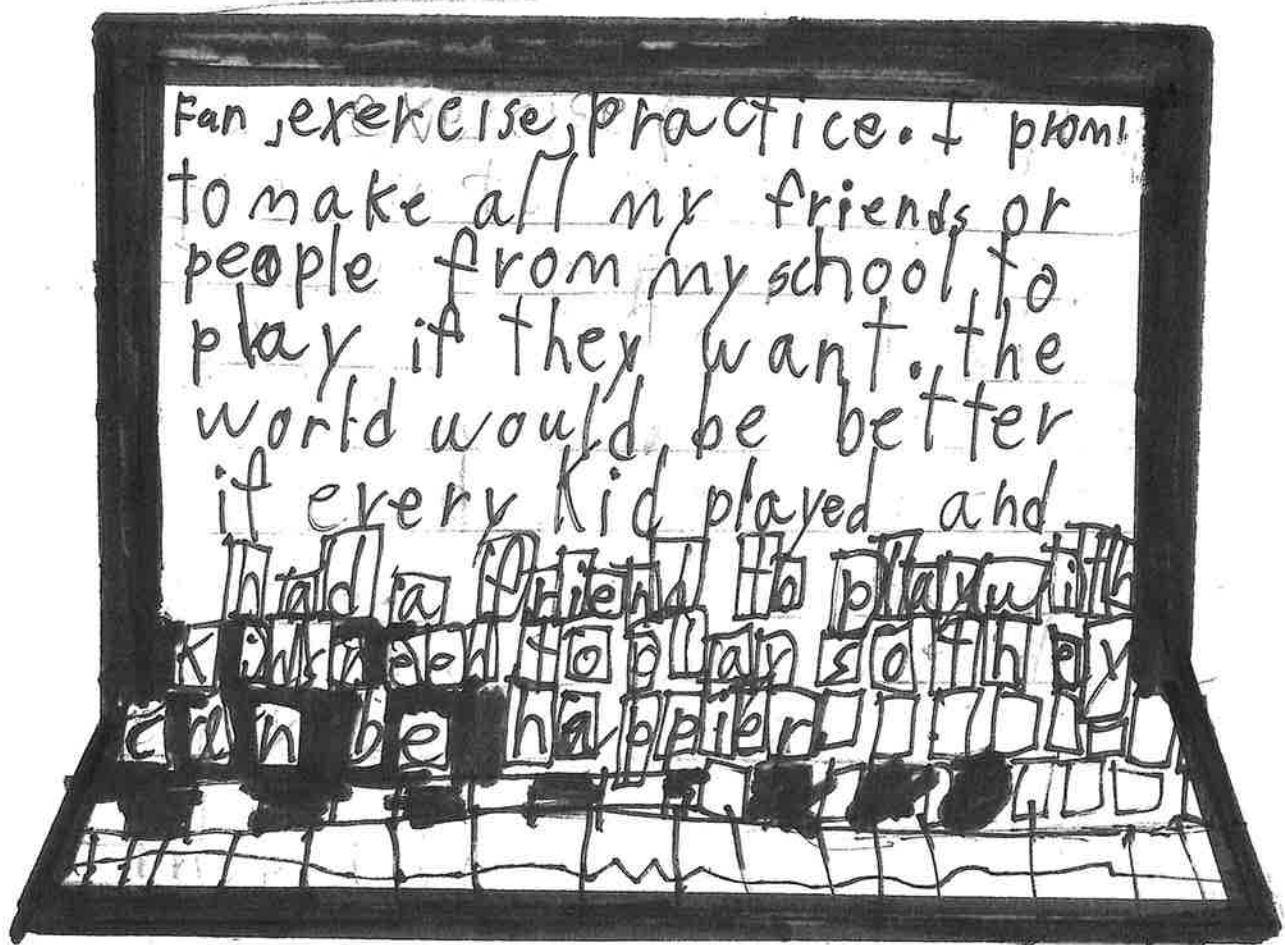 Fun, exercise, practice. I promi
to make all my friends or
people from my school to
play if they want. the
world would be better
if every kid played and
had a friend to play with
kids need to play so they
can be happier